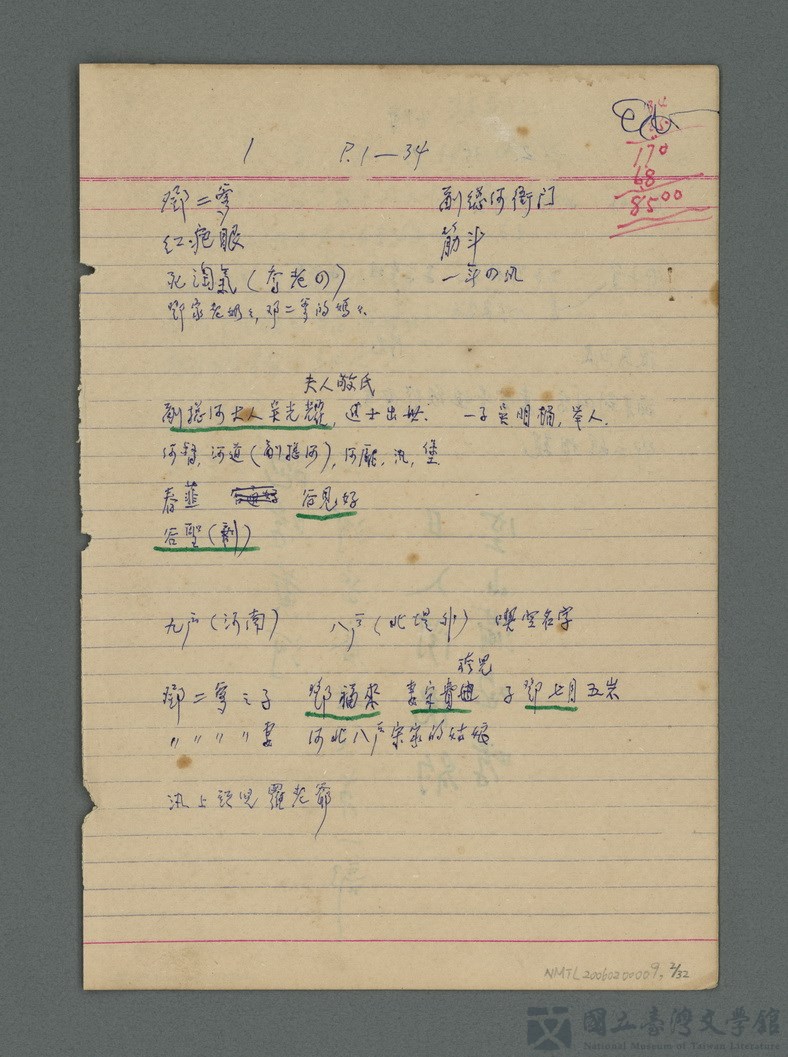 1 P.1—34
170
68
8500
鄧二爹 副總河衙门
红疤眼 筋斗
死淘氣(喬老四) 一年四汛
鄧家老奶々,邓二爹的媽々
夫人敬氏
副總河大人吴光耀,进士出身. 一子吴明楠,举人.
河督,河道(副總河),河廳,汛,堡.
春韮 谷見好
谷聖(剃)
九戶(河南) 八戶(北堤外) 喫空名字
鄧二爹之子 鄧福來 妻宋賣 子鄧七月五岁
〃〃〃〃妻 河北八戶宋家的姑娘
汛上頭兒羅老爺
NMTL20060200009, 2/32
國立臺灣文學館
National Museum of Taiwan Literature